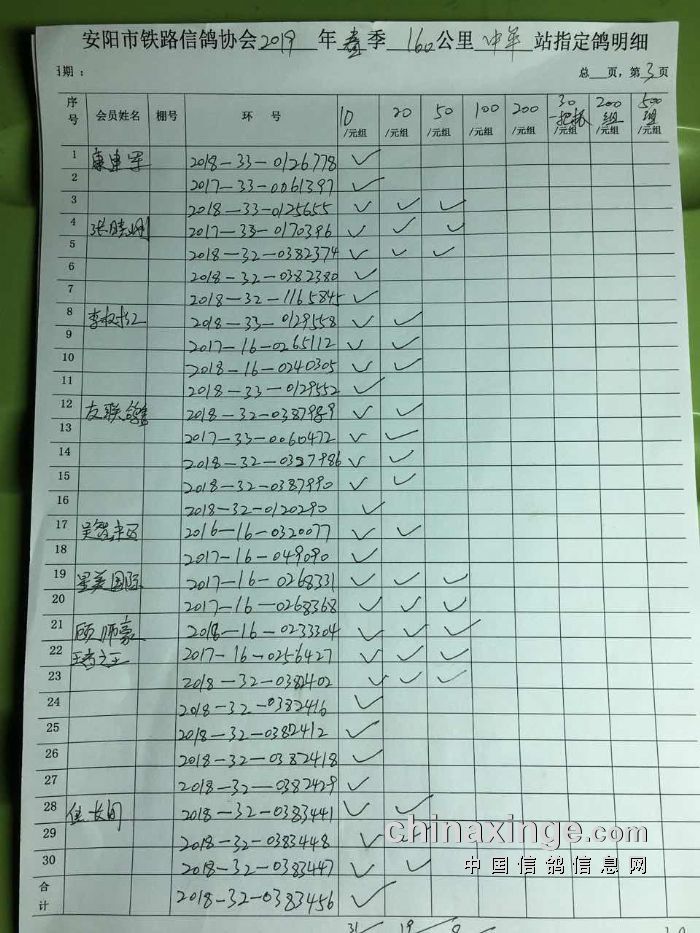 安阳市铁路信鸽协会2019年春季160公里中牟站指定鸽明细
日期： 总 页，第3页
序号 会员姓名 棚号 环 号 10/元组 20/元组 50/元组 100/元组 200/元组 30一把抓 200组 500组
1 康建军 2018-33-0126778 ✓
2 2017-33-0061397 ✓
3 2018-33-0125655 ✓ ✓ ✓
4 张晓刚 2017-33-0170396 ✓ ✓ ✓
5 2018-32-0382374 ✓ ✓ ✓
6 2018-32-0382380 ✓
7 2018-32-1165845 ✓
8 李 2018-33-0129558 ✓ ✓
9 2017-16-0265112 ✓ ✓
10 2018-16-0240305 ✓ ✓
11 2018-33-0129552 ✓
12 友联鸽舍 2018-32-0387989 ✓ ✓
13 2017-33-0060472 ✓ ✓
14 2018-32-0387986 ✓ ✓
15 2018-32-0387990 ✓ ✓
16 2018-32-0120290 ✓
17 吴 2016-16-0320077 ✓ ✓
18 2017-16-049090 ✓
19 星美国际 2017-16-0268331 ✓ ✓ ✓
20 2017-16-0268368 ✓ ✓ ✓
21 顾师豪 2018-16-0233304 ✓ ✓ ✓
22 王者之王 2017-16-0256427 ✓ ✓ ✓
23 2018-32-0382402 ✓ ✓ ✓
24 2018-32-0382416 ✓
25 2018-32-0382412 ✓
26 2018-32-0382418 ✓
27 2018-32-0382429 ✓
28 2018-32-0383441 ✓ ✓
29 2018-32-0383448 ✓ ✓
30 2018-32-0383447 ✓ ✓
合计 2018-32-0383456 ✓
31 19
chinaxinge.com
中国信鸽信息网